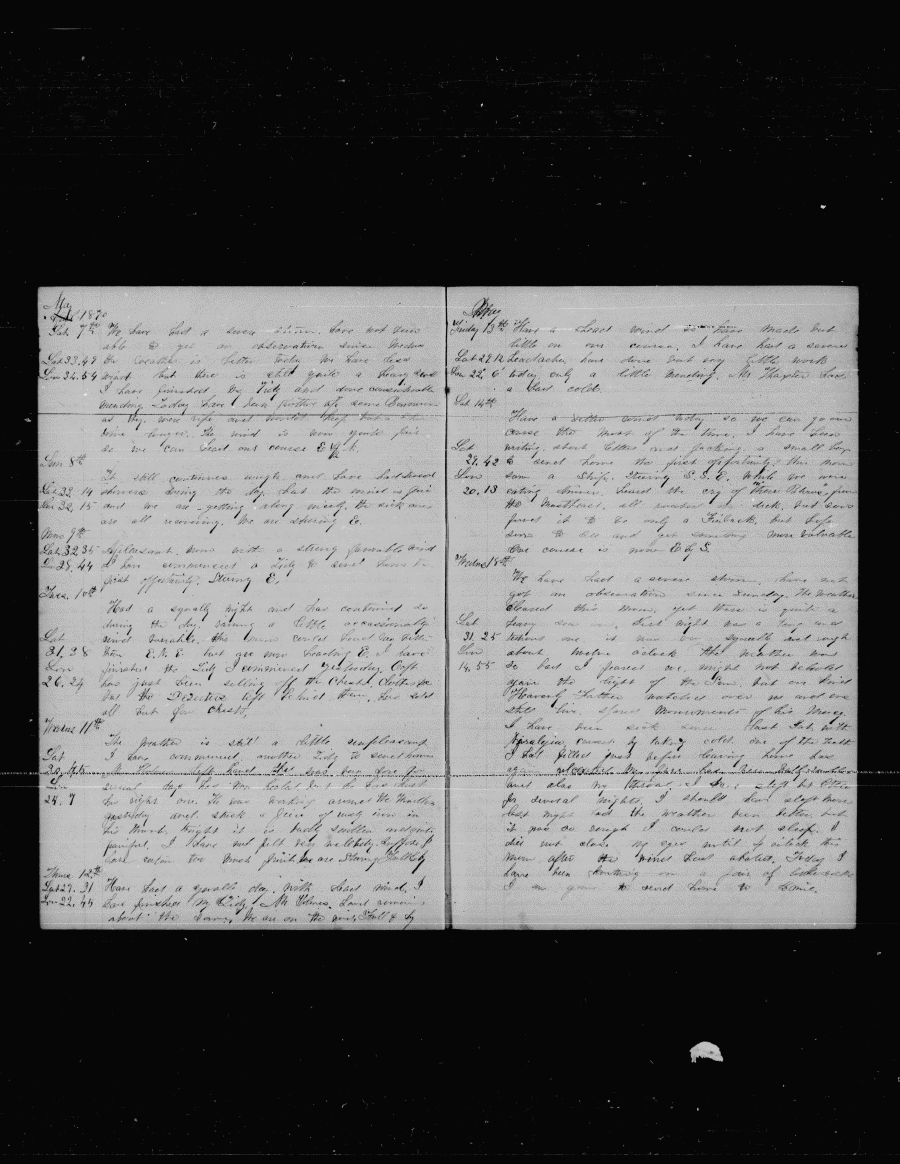 May
1870
Sat. 7th We have had a severe storm. have not been
able to get an observation since Wednes
Lat 33.47 the weather is better today We have less
Lon 34.54 wind but there is still quite a heavy sea
I have finished my Tidy and done considerable
mending Today have been
as they were ripe and would keep but a
time longer. The wind is now quite fair
so we can head our course E
Sun 8th
It still continues rough and have had several
Lat 33.14 showers during the day, but the wind is fair
Lon 32.15 and we are getting along nicely. the sick ones
are all recovering. We are steering E.
Mon 9th
Lat 32.35 A pleasant morn with a strong favorable wind
Lon 28.44 I have commenced a Tidy to send home by
first oppertunity, Steering E.
Tues. 10th
Had a squally night and has continued so
during the day, raining a little occasionally
Lat wind variable, this morn could head no better
31.38 than E.N.E but are now heading E. I have
Lon finished the Tidy I commenced yesterday, Capt
26.24 has just been selling off the Chests, Clothes &c
that the Deserters left behind them, has sold
all but four chests.
Wednes 11th
The weather is still a little unpleasant
Lat I have commenced another Tidy to send home
30.45 Mr left hand that was sore for
Lon several days has now healed but he has hurt
24.7 his right one. He was working around the
yesterday and stuck a piece of rusty iron in
his hand, tonight it is badly swollen and quite
painful. I have not felt very well to day
have eaten too much fruit We are Steering
Thurs 12th
Lat 29.31 Have had a squally day, with head wind, I
Lon 22.44 have finished my Tidy, Mr hand remains
about the same, We are on the wind, Full & by
May
Friday 13th Have a head wind have made but
little on our course, I have had a severe
Lat 29.12 headache, have done but very little work
Lon 22.6 today only a little mending. Mr Thaxter has
a bad cold.
Sat 14th
Have a better wind today so we can go our
course the most of the time, I have been
Lat writing, about letters and packing a small box
29.42 to send home the first oppertunity, this morn
Lon saw a Ship, Steering S.S.E. While we were
20.13 eating dinner, heard the cry of There Blows, from
the Masthead, all rushed on deck, but soon
found it to be only a Finback, but hope
soon to see and get something more valuable
Our course is now E by S.
Wednes 18th
We have had a severe storm, have not
got an observation since Sunday, The weather
cleared this morn, yet there is quite a
Lat heavy sea on, last night was a long and
31.25 tedious one it was so squally and rough
Lon about twelve oclock the weather was
14.55 so bad I feared we might not behold
again the light of the Sun, but our kind
Heavenly Father watched over us and we
still live, spared Monuments of his Mercy.
I have been sick since last Sat with
Neuralgia, caused by taking cold, one of the teeth
I had filled just before leaving home has
again
and also my throat, I
for several nights, I should have slept more
last night had the weather been better but
it was so rough I could not sleep, I
did not close my eyes until oclock this
morn after the wind had abated, Today I
have been knitting on a pair of
I am going to send home to